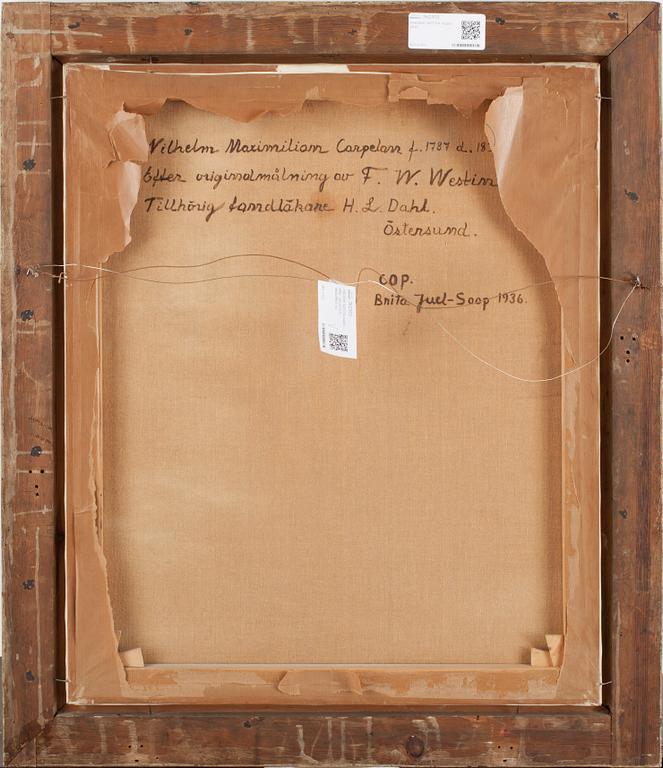 Wilhelm Maximiliam Carpelan f. 1787 d. 18
Efter originalmålning av F. W. Westin
Tillhörig tandläkare H. L. Dahl.
Östersund.
COP.
Brita Juel-Soop 1936.